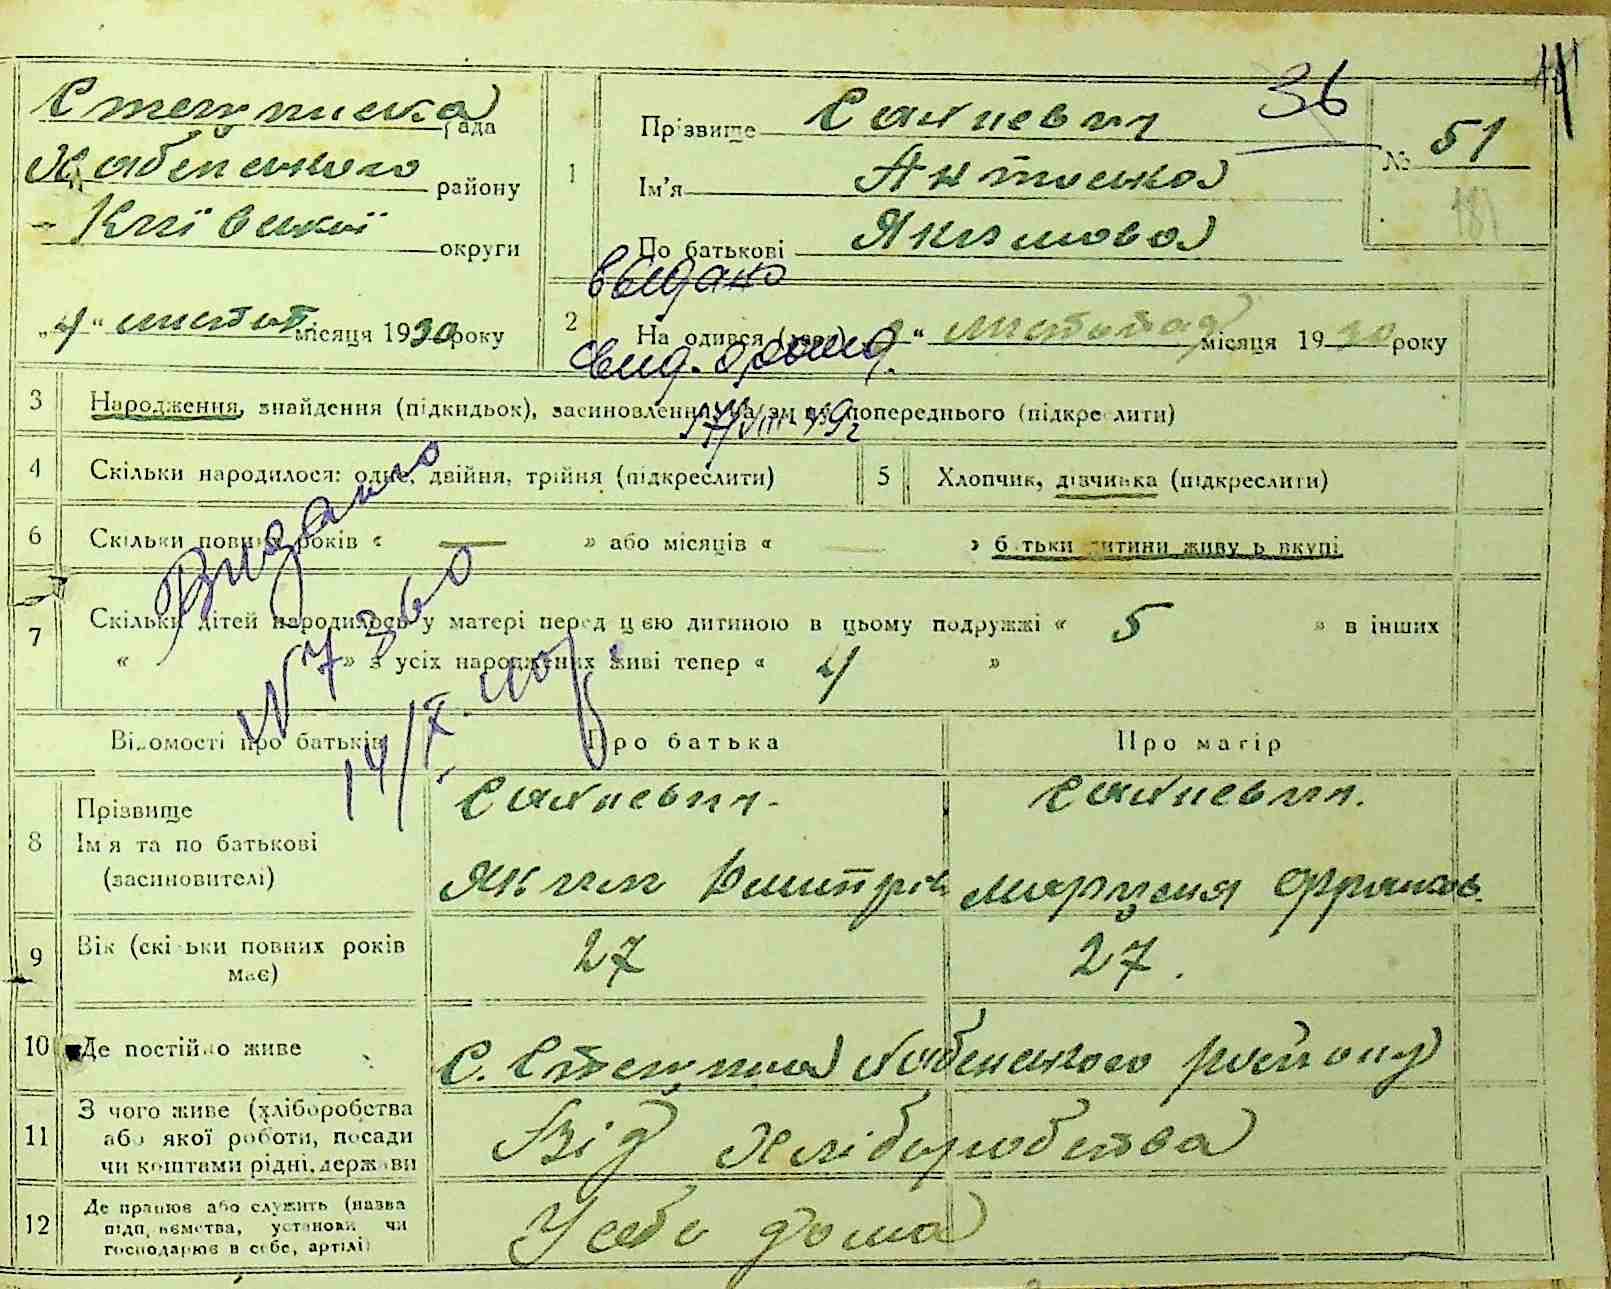 Стещинска рада
Хабенського району
Київської округи
„4“ листоп місяця 1930 року
1
Прізвище Сахневич
36
Ім'я Антонька
По батькові Якимова
№ 51
181
видано
2
На одився „ “ листопад місяця 1930 року
свид. о рожд.
17/VIII 49г
3 Народження, знайдення (підкидьок), засиновлення попереднього (підкреслити)
4 Скільки народилося: одне, двійня, трійня (підкреслити) 5 Хлопчик, дівчинка (підкреслити)
6 Скільки повних років « — » або місяців « — » батьки дитини живуть вкупі
7 Скільки дітей народилось у матері перед цією дитиною в цьому подружжі « 5 » в інших
« » з усіх народжених живі тепер « 4 »
Видано
№ 7360
14/X
Відомості про батьків Про батька Про матір
8 Прізвище Сахневич Сахневич.
Ім'я та по батькові
(засиновителі) Яким Дмитрів Марцеля Франков.
9 Вік (скільки повних років має) 27 27.
10 Де постійно живе С. Стещина Хабенського району
11 З чого живе (хліборобства
або якої роботи, посади
чи коштами рідні, держави Від хліборобства
12 Де працює або служить (назва
підприємства, установи чи
господарює в себе, артілі) У себе дома